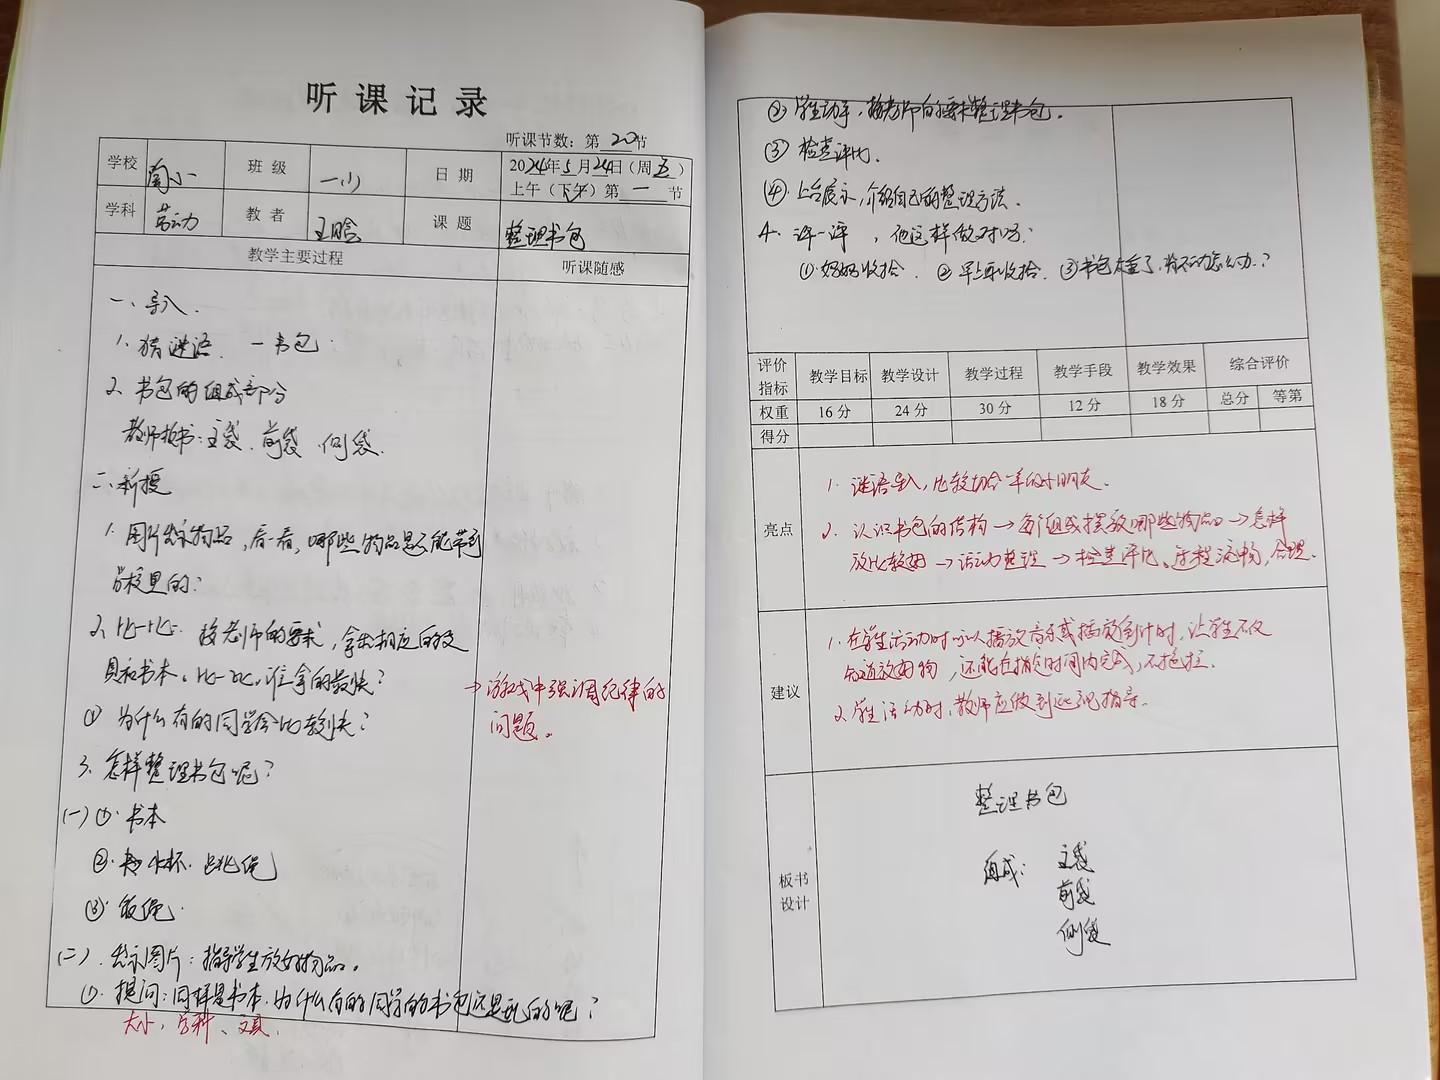 听课记录
听课节数：第 20 节
学校 南小 班级 一（1） 日期 2024年5月24日（周五）
上午（下午）第 一 节
学科 劳动 教者 王晗 课题 整理书包
教学主要过程 听课随感
一、导入.
1. 猜谜语. —书包.
2. 书包的组成部分
教师板书：主袋、前袋、侧袋.
二、新授
1. 图片出示物品，看一看，哪些物品是不能带到
学校里的？
2、比一比： 按老师的要求，拿出相应的文
具和书本。比一比，谁拿的最快？
→游戏中强调纪律的
问题。
① 为什么有的同学会比较快？
3. 怎样整理书包呢？
(一) ①. 书本
②. 水杯. 跳绳
③.
(二). 出示图片：指导学生放好物品。
①. 提问：同样是书本，为什么有的同学的书包还是乱的呢？
大小、学科、文具.
② 学生动手，按老师的要求整理书包.
③ 检查评比.
④. 上台展示，介绍自己的整理方法.
4. 评一评 ，他这样做对吗？
① 妈妈收拾. ② 早上再收拾. ③ 书包太重了，背不动怎么办？
评价指标 教学目标 教学设计 教学过程 教学手段 教学效果 综合评价
权重 16分 24分 30分 12分 18分 总分 等第
得分
亮点
1. 谜语导入，比较切合一年级小朋友.
2. 认识书包的结构→每个组成摆放哪些物品→怎样
放比较好→活动整理→检查评比、流程流畅，合理.
建议
1. 在学生活动时可以播放音乐或播放倒计时，让学生不仅
知道放好物，还能在指定时间内完成，不拖拉.
2. 学生活动时，教师应做到巡视指导.
板书设计
整理书包
组成： 主袋
前袋
侧袋